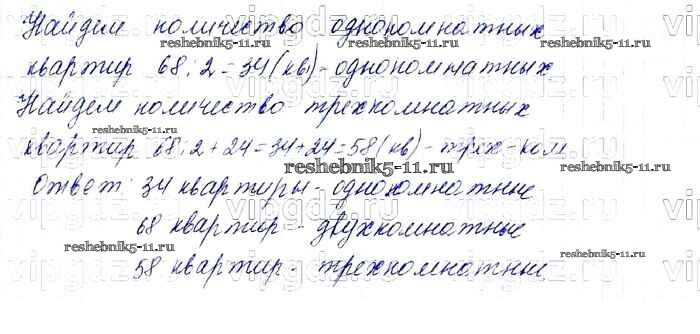 Найдем количество однокомнатных
квартир 68:2=34(кв)-однокомнатных
Найдем количество трехкомнатных
квартир 68:2+24=34+24=58(кв)-трех-ком
Ответ: 34 квартиры-однокомнатные
68 квартир - двухкомнатные
58 квартир - трехкомнатные
reshebnik5-11.ru
reshebnik5-11.ru
reshebnik5-11.ru
reshebnik5-11.ru
reshebnik5-11.ru
reshebnik5-11.ru
reshebnik5-11.ru
reshebnik5-11.ru